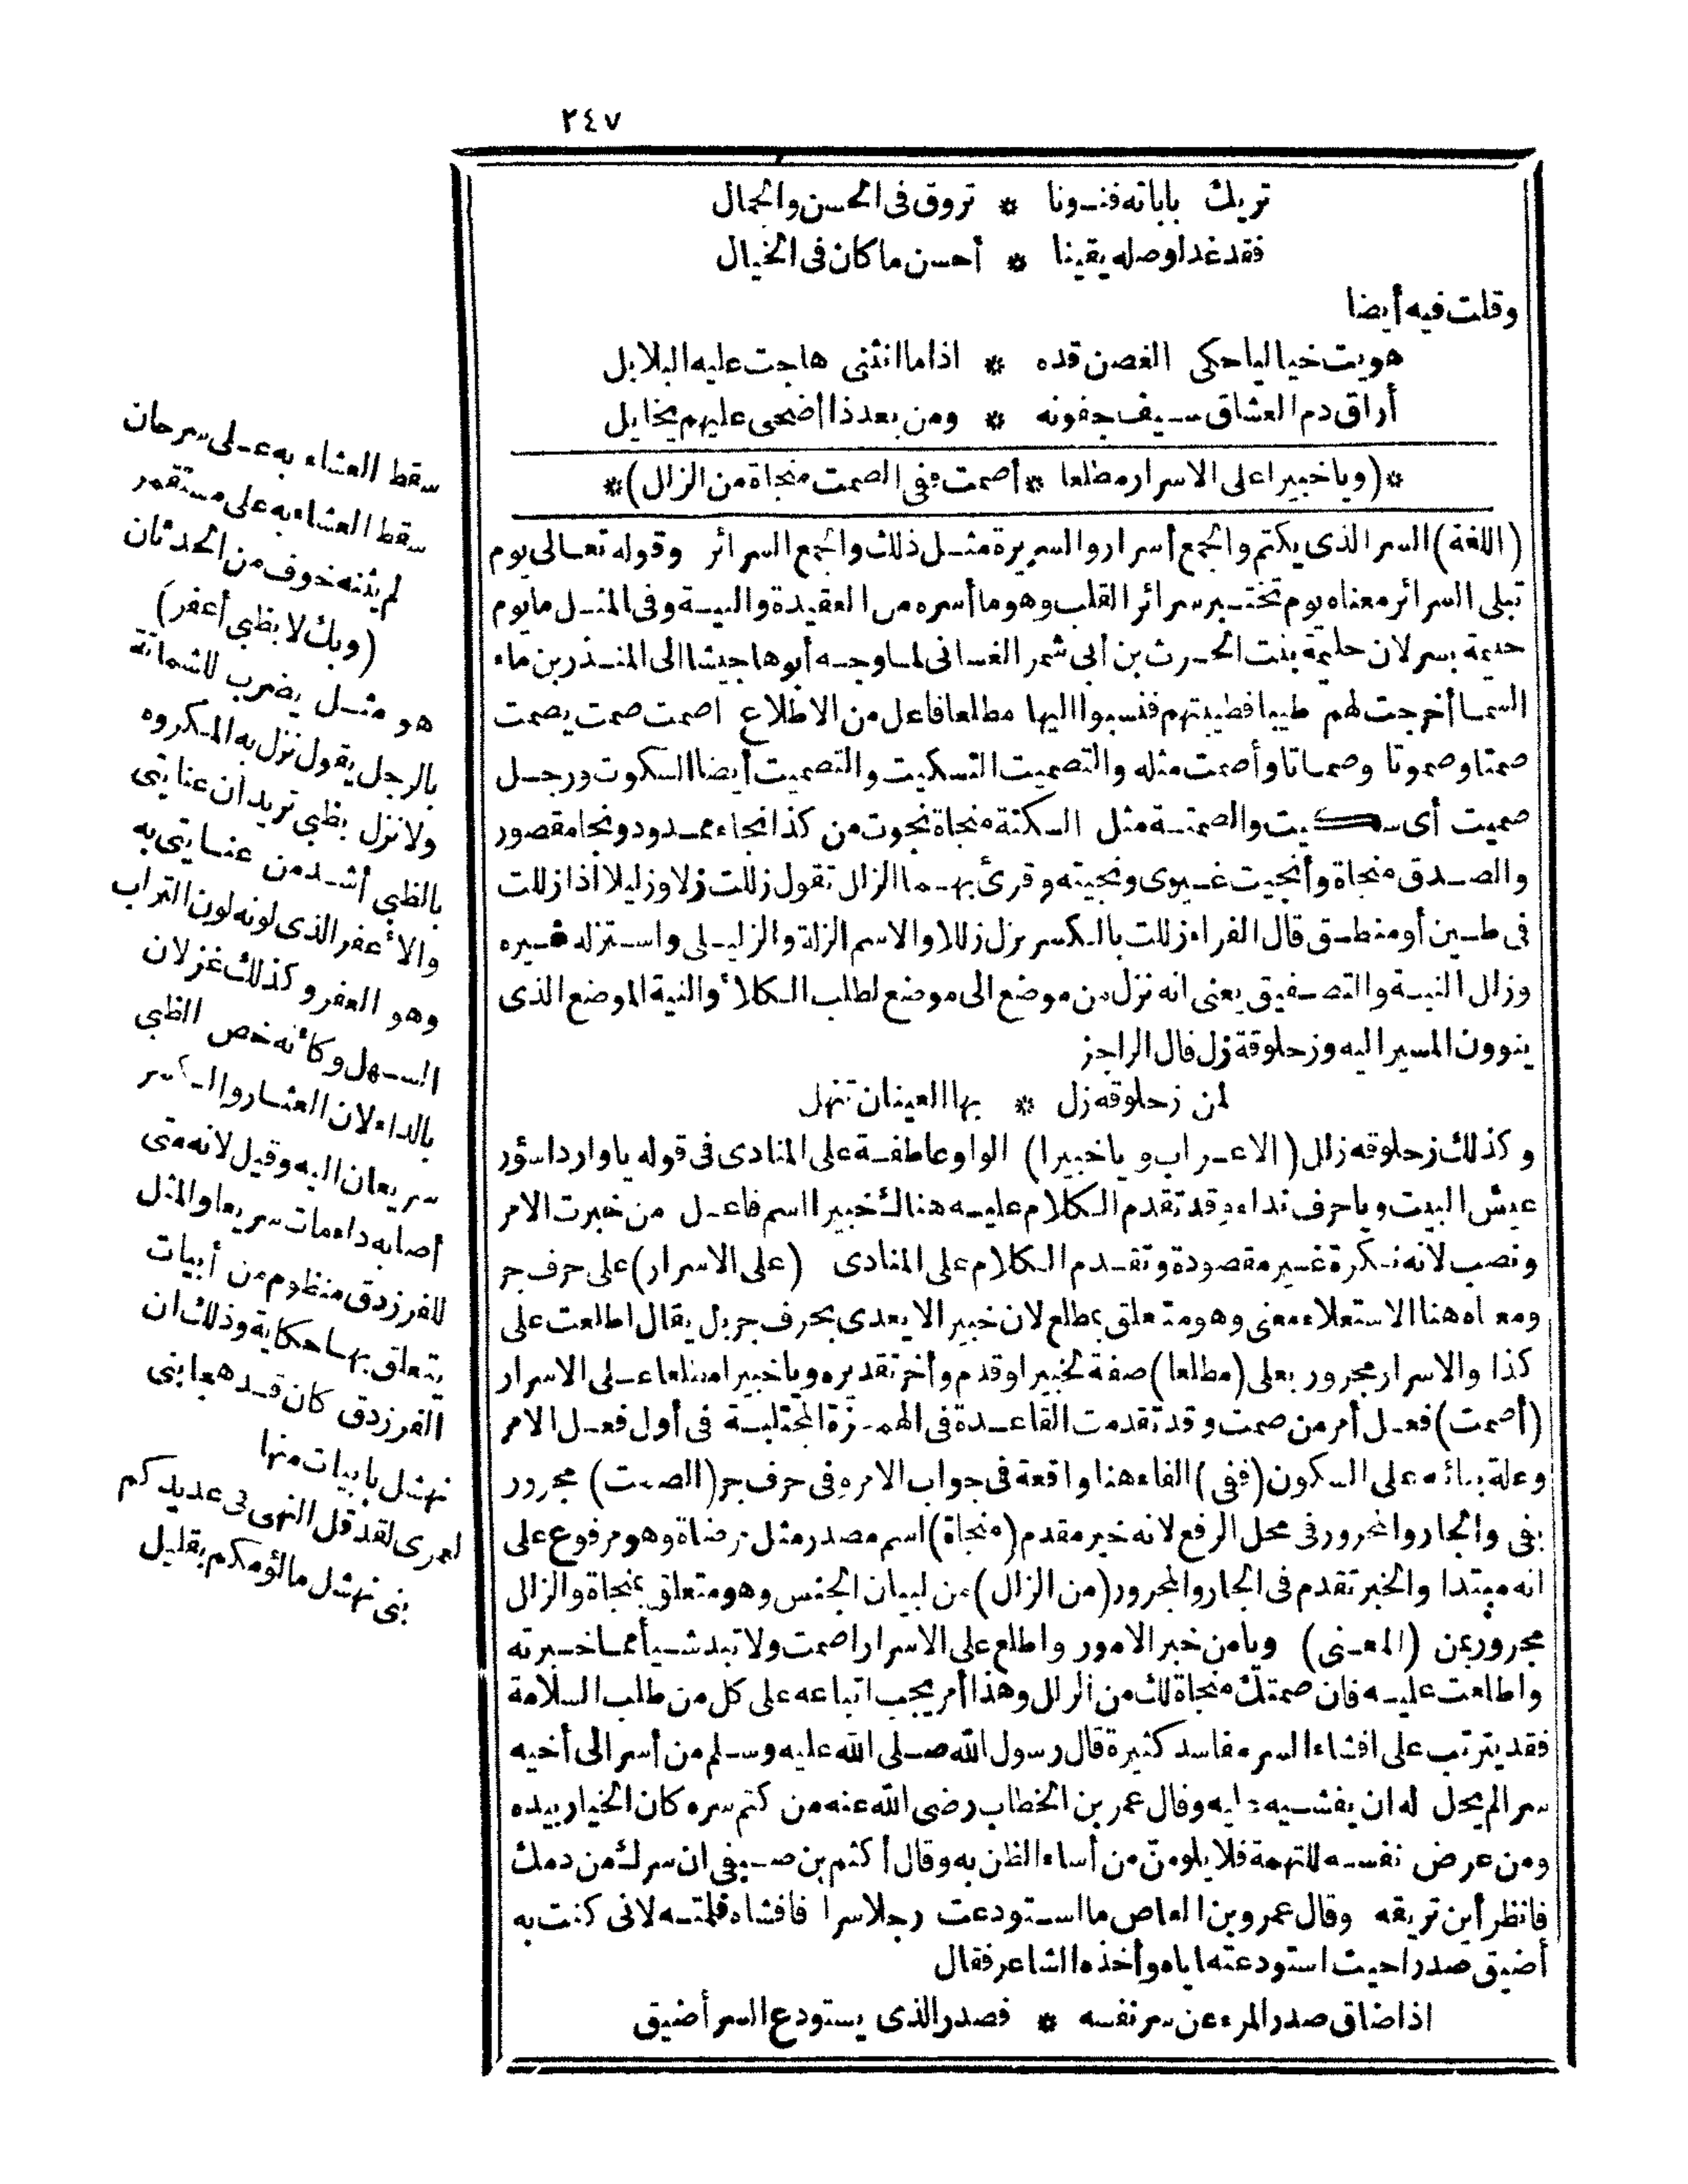 ٢٤٧
تريك باباته فنونا * تروق فى الحسن والجمال
فقد غدا وصله يقينا * أحسن ما كان فى الخيال
وقلت فيه أيضا
هويت خياليا حكى الغصن قده * اذا ما انثنى هاجت عليه البلابل
أراق دم العشاق سيف جفونه * ومن بعد ذا أضحى عليهم يخايل
*(وياخبيرا على الاسرار مطلعا * أصمت ففى الصمت منجاة من الزلل)*
(اللغة) السر الذى يكتم والجمع أسرار والسريرة مثل ذلك والجمع السرائر وقوله تعالى يوم
تبلى السرائر معناه يوم تختبر سرائر القلب وهو ما أسره من العقيدة والنية وفى المثل ما يوم
حليمة بسر لان حليمة بنت الحرث بن أبى شمر الغسانى لما وجه أبوها جيشا الى المنذر بن ماء
السما أخرجت لهم طيبا فطيبتهم فنسبوا اليها مطلعا فاعل من الاطلاع اصمت صمت يصمت
صمتا وصموتا وصماتا وأصمت مثله والتصميت التسكيت والتصميت أيضا السكوت ورجل
صميت أى سكيت والصمتة مثل السكتة منجاة نجوت من كذا نجاء ممدود ونجا مقصور
والصدق منجاة وأنجيت غيرى ونجيته وقرئ بهما الزلل تقول زللت زلا وزليلا اذا زللت
فى طين أو منطق قال الفراء زللت بالكسر يزل زللا والاسم الزلة والزليلى واستزله غيره
وزلل النية والتصفيق يعنى انه نزل من موضع الى موضع لطلب الكلأ والنية الموضع الذى
ينوون المسير اليه وزحلوقة زل قال الراجز
لمن زحلوقه زل * بها العينان تنهل
وكذلك زحلوقه زلل (الاعراب ويا خبيرا) الواو عاطفة على المنادى فى قوله يا واردا سؤر
عيش البيت ويا حرف نداء وقد تقدم الكلام عليه هناك خبيرا اسم فاعل من خبرت الامر
ونصب لانه نكرة غير مقصودة وتقدم الكلام على المنادى (على الاسرار) على حرف جر
ومعناه هنا الاستعلاء معنى وهو متعلق بمطلع لان خبيرا لا يعدى بحرف جر بل يقال اطلعت على
كذا والاسرار مجرور بعلى (مطلعا) صفة لخبيرا وقدم وأخر تقديره ويا خبيرا مطلعا على الاسرار
(أصمت) فعل أمر من صمت وقد تقدمت القاعدة فى الهمزة المجتلبة فى أول فعل الامر
وعلة بنائه على السكون (ففى) الفاء هنا واقعة فى جواب الامر وفى حرف جر (الصمت) مجرور
بفى والجار والمجرور فى محل الرفع لانه خبر مقدم (منجاة) اسم مصدر مثل مرضاة وهو مرفوع على
انه مبتدا والخبر تقدم فى الجار والمجرور (من الزلل) من لبيان الجنس وهو متعلق بمنجاة والزلل
مجرور بمن (المعنى) ويا من خبر الامور واطلع على الاسرار اصمت ولا تبد شيأ مما خبرته
واطلعت عليه فان صمتك منجاة لك من الزلل وهذا أمر يجب اتباعه على كل من طلب السلامة
فقد يترتب على افشاء السر مفاسد كثيرة قال رسول الله صلى الله عليه وسلم من أسر الى أخيه
سرا لم يحل له ان يفشيه عليه وقال عمر بن الخطاب رضى الله عنه من كتم سره كان الخيار بيده
ومن عرض نفسه للتهمة فلا يلومن من أساء الظن به وقال أكثم بن صيفى ان سرك من دمك
فانظر أين تريقه وقال عمرو بن العاص ما استودعت رجلا سرا فافشاه فلمته لانى كنت به
أضيق صدرا حيث استودعته اياه وأخذه الشاعر فقال
اذا ضاق صدر المرء عن سر نفسه * فصدر الذى يستودع السر أضيق
سقط العشاء به على سرحان
سقط العشاء به على مستقمر
لم يثنه خوف من الحدثان
(وبك لا بظبى أعفر)
هو مثل يضرب للشماتة
بالرجل يقول نزل به المكروه
ولا نزل بظبى تريد ان عنايتى
بالظبى أشد من عنايتى به
والأعفر الذى لونه لون التراب
وهو العفر وكذلك غزلان
السهل وكأنه خص الظبى
بالداء لان العثار والكسر
سريعان اليه وقيل لانه متى
أصابه داء مات سريعا والمثل
للفرزدق منظوم من أبيات
يتعلق بها حكاية وذلك ان
الفرزدق كان قد هجا بنى
نهشل بابيات منها
لعمرى لقد قل النهى فى عديدكم
بنى نهشل ما لؤمكم بقليل